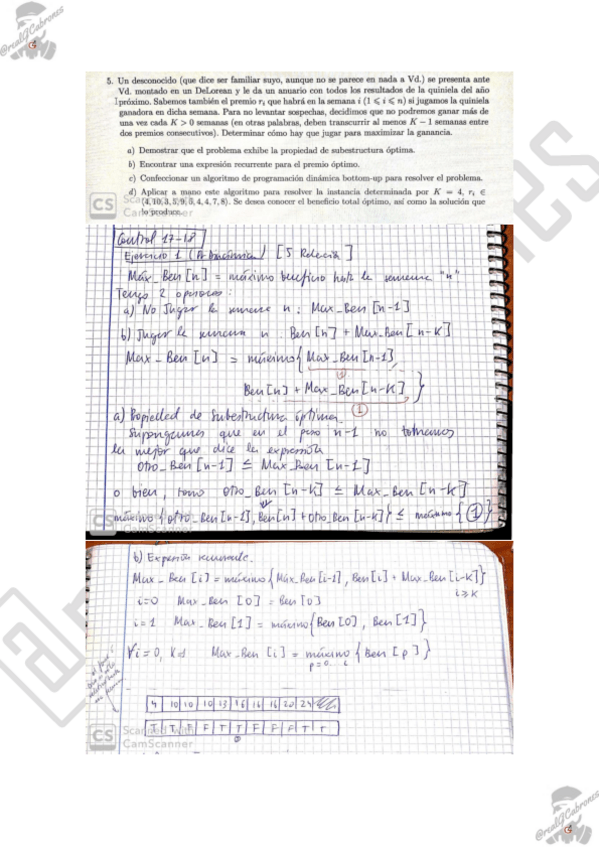 @realGCabrones
5. Un desconocido (que dice ser familiar suyo, aunque no se parece en nada a Vd.) se presenta ante
Vd. montado en un DeLorean y le da un anuario con todos los resultados de la quiniela del año
próximo. Sabemos también el premio rᵢ que habrá en la semana i (1 ⩽ i ⩽ n) si jugamos la quiniela
ganadora en dicha semana. Para no levantar sospechas, decidimos que no podremos ganar más de
una vez cada K > 0 semanas (en otras palabras, deben transcurrir al menos K − 1 semanas entre
dos premios consecutivos). Determinar cómo hay que jugar para maximizar la ganancia.
a) Demostrar que el problema exhibe la propiedad de subestructura óptima.
b) Encontrar una expresión recurrente para el premio óptimo.
c) Confeccionar un algoritmo de programación dinámica bottom-up para resolver el problema.
d) Aplicar a mano este algoritmo para resolver la instancia determinada por K = 4, rᵢ ∈
(4, 10, 3, 5, 9, 5, 4, 4, 7, 8). Se desea conocer el beneficio total óptimo, así como la solución que
lo produce.
CS
Control 17-18
Ejercicio 1 [5 Relación]
Máx_Ben [n] = máximo beneficio hasta la semana "n"
Tengo 2 opciones:
a) No Jugar la semana n: Max_Ben [n-1]
b) Jugar la semana n: Ben [n] + Max_Ben [n-K]
Max_Ben [n] = máximo { Max_Ben [n-1],
Ben [n] + Max_Ben [n-K] }
①
a) Propiedad de Subestructura óptima
Supongamos que en el paso n-1 no tomamos
la mejor que dice la expresión
Otro_Ben [n-1] ≤ Max_Ben [n-1]
o bien, tomo Otro_Ben [n-K] ≤ Max_Ben [n-K]
máximo { otro_Ben [n-1], Ben [n] + otro_Ben [n-K] } ≤ máximo { ① }
CS
CamScanner
b) Expresión recurrente.
Max_Ben [i] = máximo { Max_Ben [i-1], Ben [i] + Max_Ben [i-K] }
i ≥ K
i=0 Max_Ben [0] = Ben [0]
i=1 Max_Ben [1] = máximo { Ben [0], Ben [1] }
∀i = 0, K-1 Max_Ben [i] = máximo { Ben [p] }
p=0..i
4 10 10 10 13 15 16 16 20 24
T T F F T T F F F T T
CS Scanned with
CamScanner
@realGCabrones